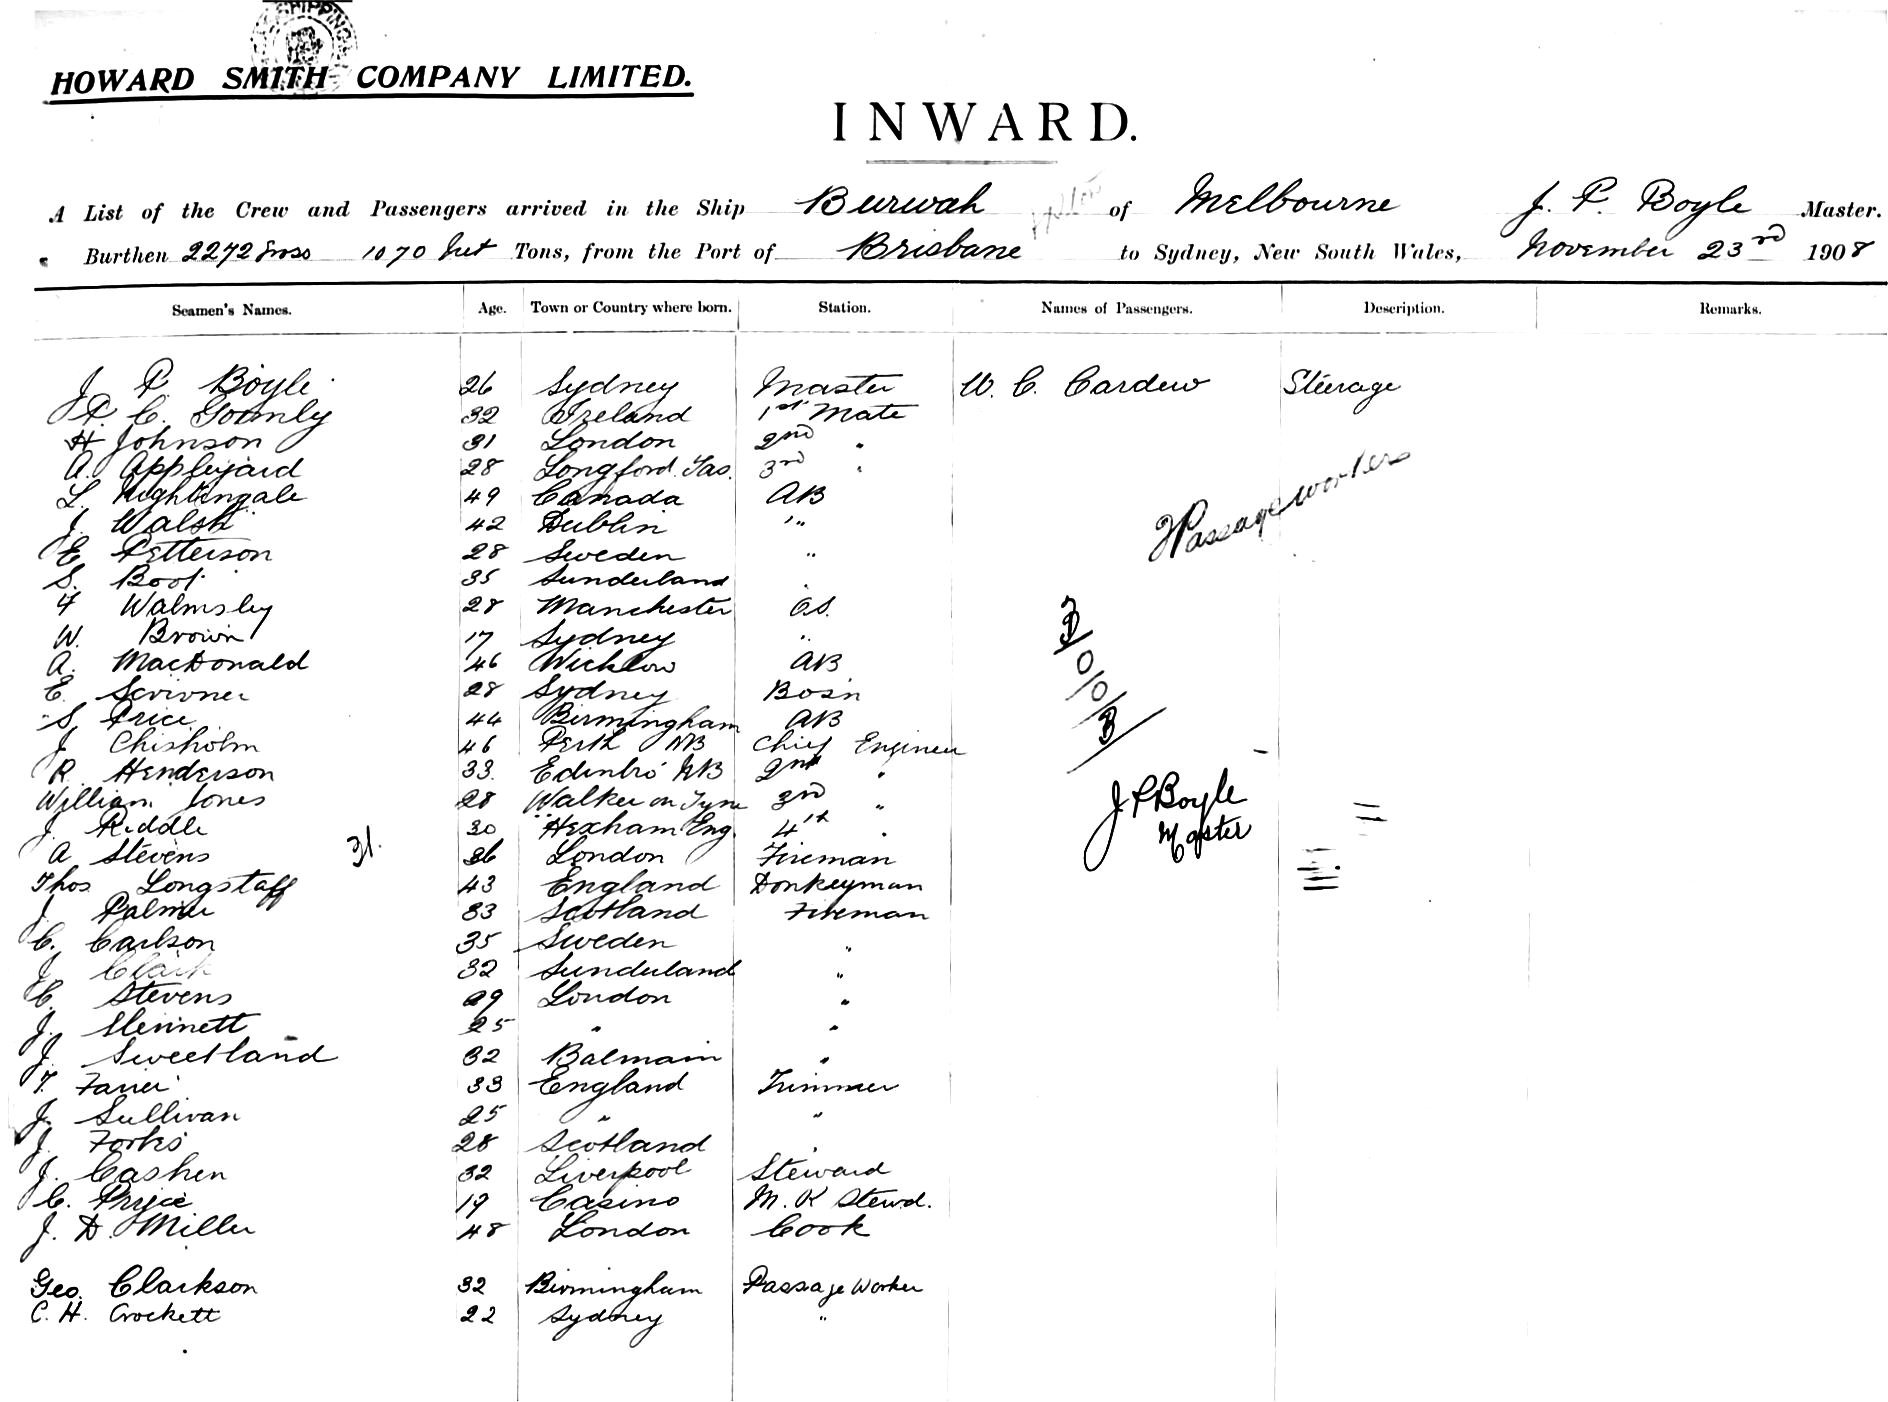 SHIPPING
HOWARD SMITH COMPANY LIMITED.
INWARD.
A List of the Crew and Passengers arrived in the Ship Burwah of Melbourne J. P. Boyle Master.
Burthen 2272 Gross 1070 Net Tons, from the Port of Brisbane to Sydney, New South Wales, November 23rd 1908
Seamen's Names. Age. Town or Country where born. Station. Names of Passengers. Description. Remarks.
J. P. Boyle 26 Sydney Master W. C. Cardew Steerage
P. C. Gormly 32 Ireland 1st Mate
H Johnson 31 London 2nd "
A. Appleyard 28 Longford Tas. 3rd "
L. Nightingale 49 Canada AB
J. Walsh 42 Dublin "
E Petterson 28 Sweden "
S. Boot 35 Sunderland "
F Walmsley 28 Manchester O.S.
W. Brown 17 Sydney "
A. MacDonald 46 Wicklow AB
E. Scrivner 28 Sydney Bosn
S. Price 44 Birmingham AB
J Chisholm 46 Perth NB Chief Engineer
R Henderson 33. Edinbro NB 2nd "
William Jones 28 Walker on Tyne 3rd "
J. Riddle 30 Hexham Eng. 4th "
A Stevens 36 London Fireman
Thos Longstaff 43 England Donkeyman
J. Palmer 33 Scotland Fireman
C. Carlson 35 Sweden "
J Clark 32 Sunderland "
C. Stevens 29 London "
J. 25 " "
J. Sweetland 32 Balmain "
T. 33 England Trimmer
J. Sullivan 25 " "
J. Forbes 28 Scotland "
J. Cashen 32 Liverpool Steward
C. Pryce 19 Casino M. R Stewd.
J. D. Miller 48 London Cook
Geo. Clarkson 32 Birmingham Passage Worker
C. H. Crockett 22 Sydney "
31.
2 Passage workers
3/0/0/3
J P Boyle
Master